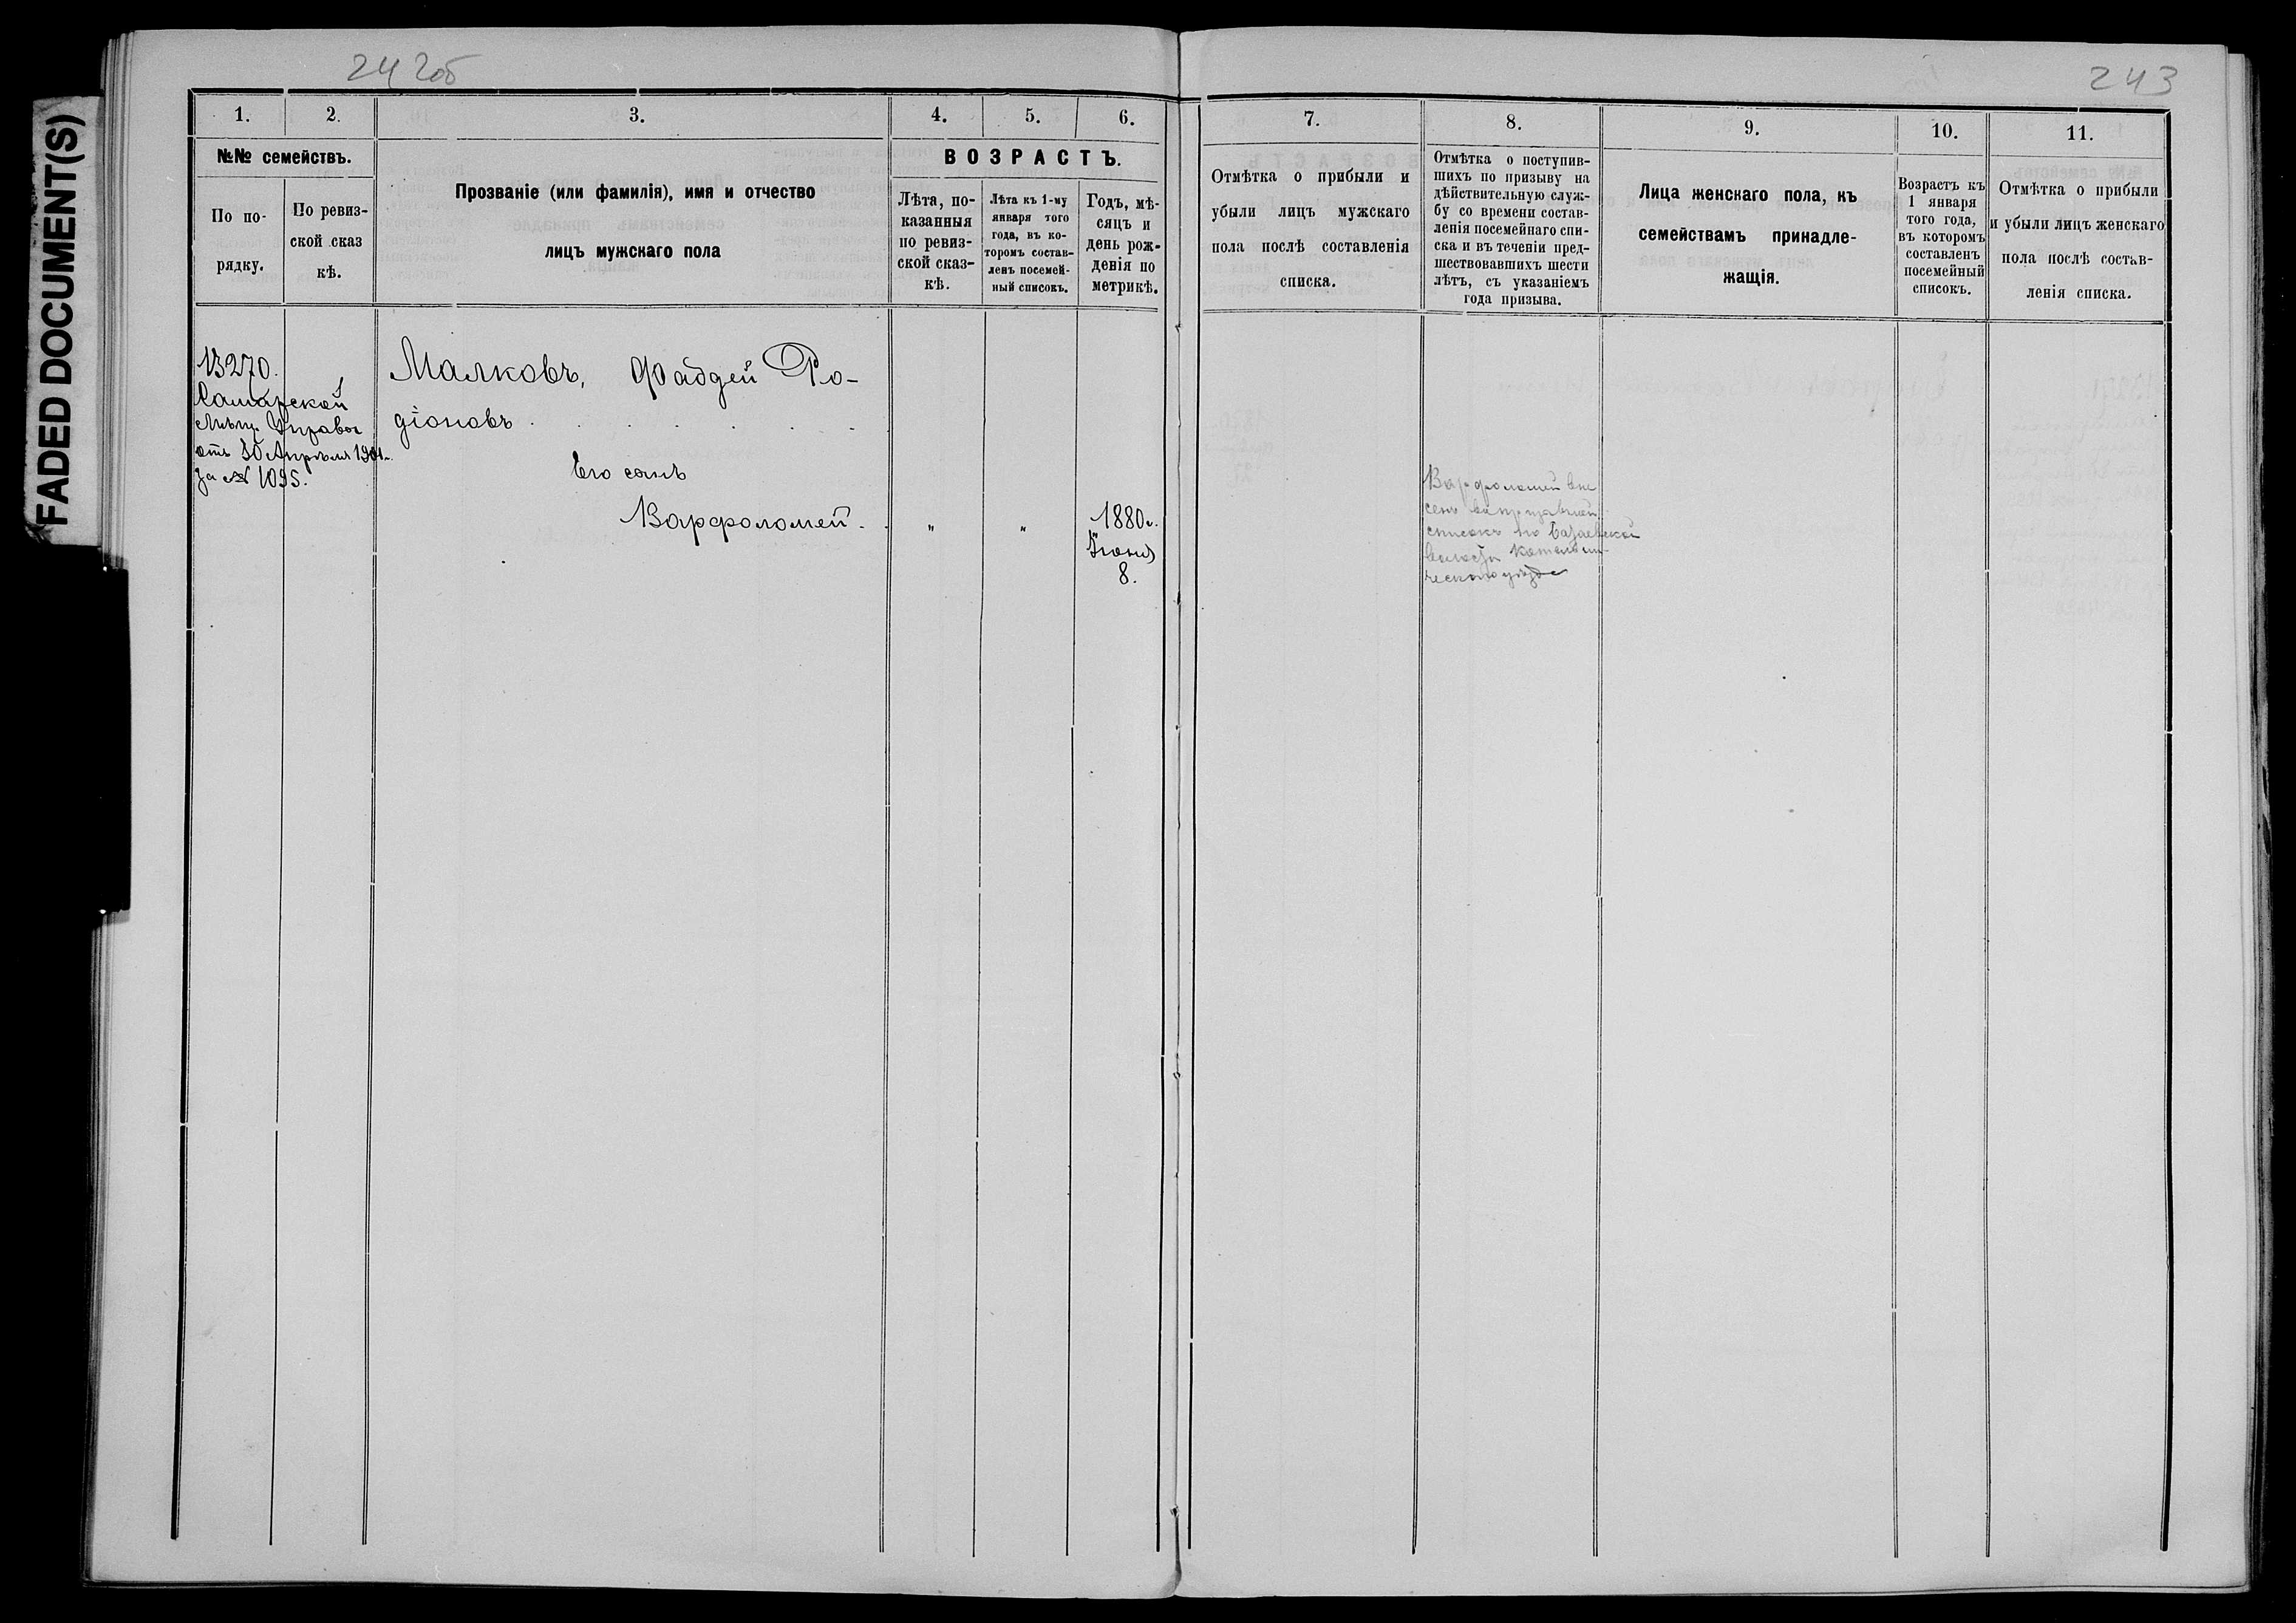 FADED DOCUMENT(S)
242об
243
1.
2.
3.
4.
5.
6.
№№ семействъ.
По по-
рядку.
По ревиз-
ской сказ
кѣ.
Прозваніе (или фамилія), имя и отчество
лицъ мужскаго пола
ВОЗРАСТЪ.
Лѣта, по-
казанныя
по ревиз-
ской сказ-
кѣ.
Лѣта къ 1-му
января того
года, въ ко-
торомъ состав-
ленъ посемей-
ный списокъ.
Годъ, мѣ-
сяцъ и
день рож-
денія по
метрикѣ.
7.
8.
9.
10.
11.
Отмѣтка о прибыли и
убыли лицъ мужскаго
пола послѣ составленія
списка.
Отмѣтка о поступив-
шихъ по призыву на
дѣйствительную служ-
бу со времени состав-
ленія посемейнаго спи-
ска и въ теченіи пред-
шествовавшихъ шести
лѣтъ, съ указаніемъ
года призыва.
Лица женскаго пола, къ
семействамъ принадле-
жащія.
Возрастъ къ
1 января
того года,
въ которомъ
составленъ
посемейный
списокъ.
Отмѣтка о прибыли
и убыли лицъ женскаго
пола послѣ состав-
ленія списка.
13270.
Самарской
Мѣщ. Управы
отъ 30 Апрѣля 1901 г.
за № 1095.
Малковъ, Фаддей Ро-
діоновъ
Его сынъ
Варфоломей
"
"
1880 г.
Іюня
8.
Варфоломей вне
сенъ въ призывной
списокъ по
волости
уѣзда